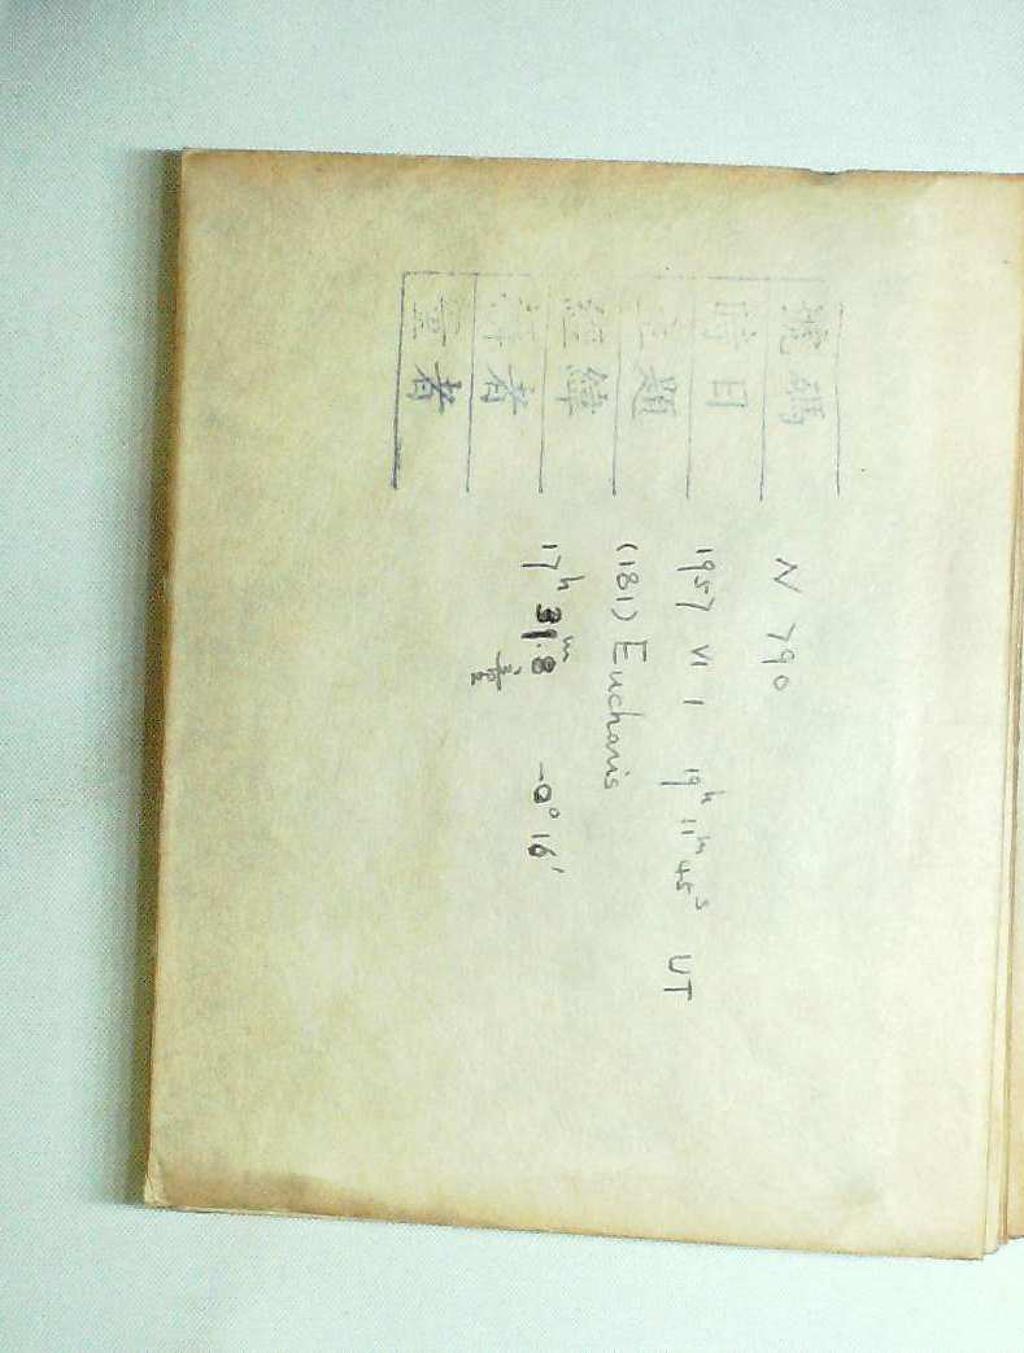 號碼 N 790
時日 1957 VI 1 19ʰ 11ᵐ 45ˢ UT
主題 (181) Eucharis
經緯 17ʰ 39ᵐ.8 -0° 16′
者
者